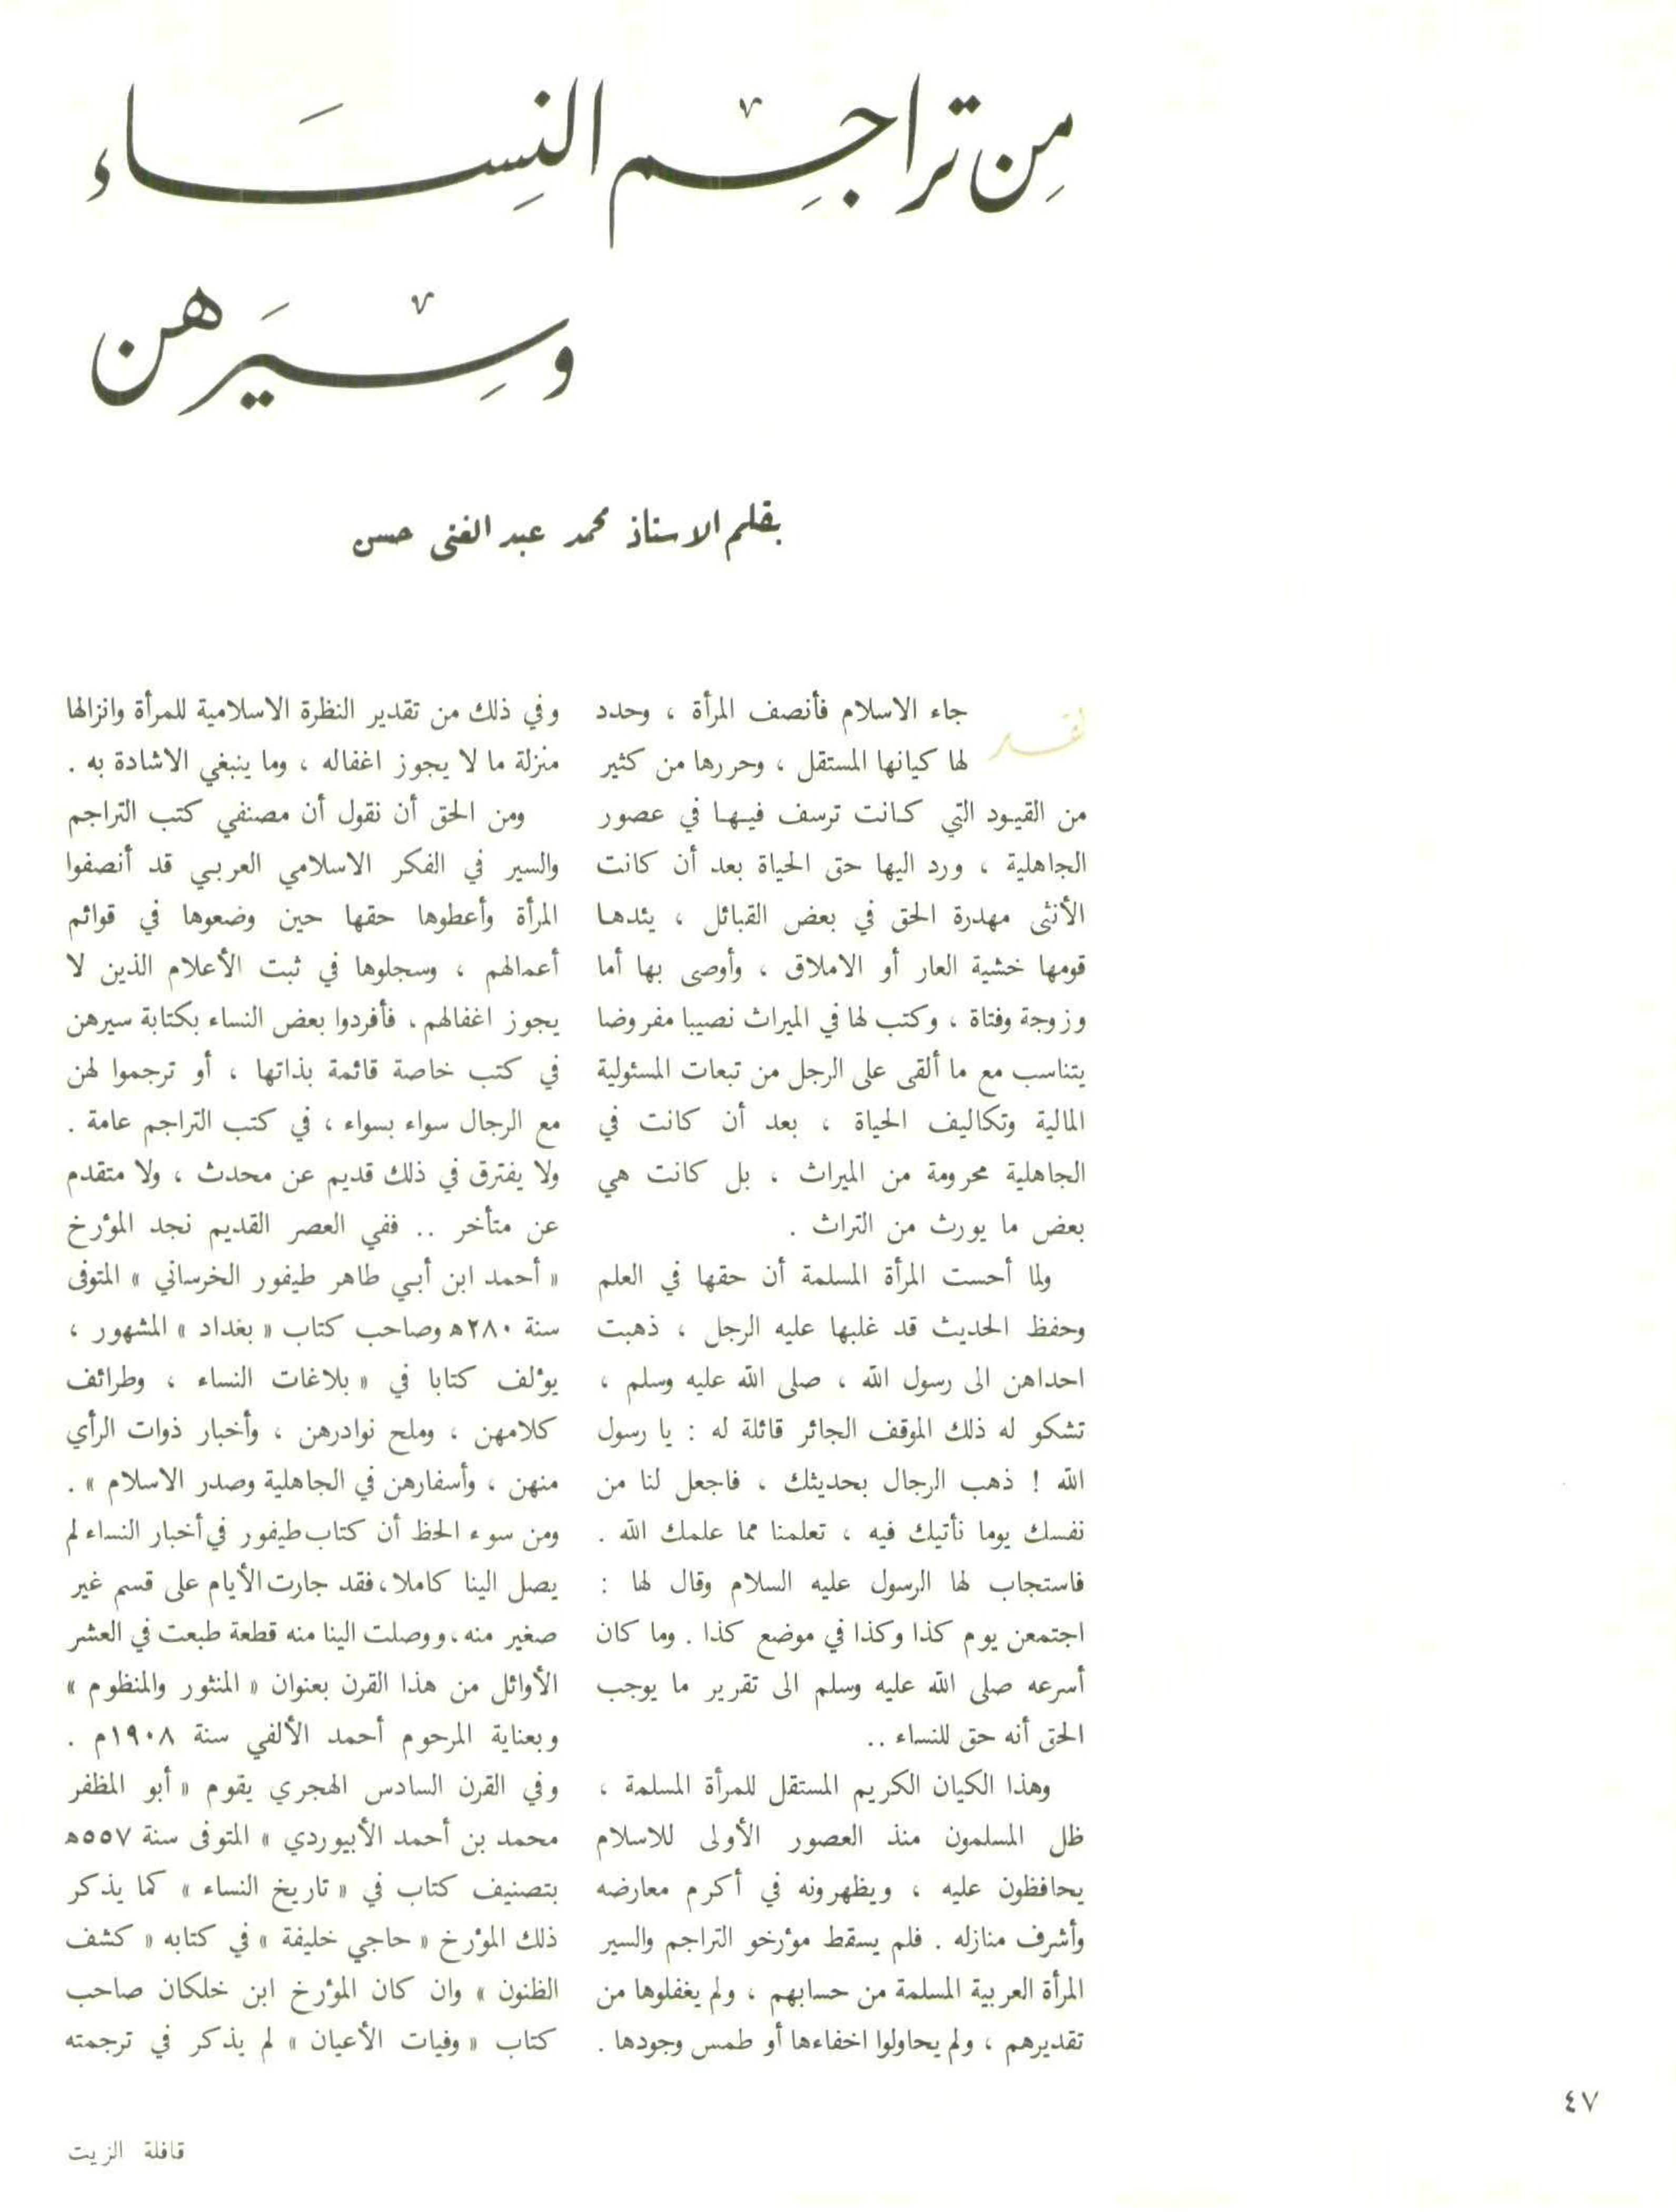 مِن تراجِم النِسَاء
وسِيَرهن
بقلم الاستاذ محمد عبد الغنى حسن
لقد جاء الاسلام فأنصف المرأة ، وحدد
لها كيانها المستقل ، وحررها من كثير
من القيود التي كانت ترسف فيها في عصور
الجاهلية ، ورد اليها حق الحياة بعد أن كانت
الأنثى مهدرة الحق في بعض القبائل ، يئدها
قومها خشية العار أو الاملاق ، وأوصى بها أما
وزوجة وفتاة ، وكتب لها في الميراث نصيبا مفروضا
يتناسب مع ما ألقى على الرجل من تبعات المسئولية
المالية وتكاليف الحياة ، بعد أن كانت في
الجاهلية محرومة من الميراث ، بل كانت هي
بعض ما يورث من التراث .
ولما أحست المرأة المسلمة أن حقها في العلم
وحفظ الحديث قد غلبها عليه الرجل ، ذهبت
احداهن الى رسول الله ، صلى الله عليه وسلم ،
تشكو له ذلك الموقف الجائر قائلة له : يا رسول
الله ! ذهب الرجال بحديثك ، فاجعل لنا من
نفسك يوما نأتيك فيه ، تعلمنا مما علمك الله .
فاستجاب لها الرسول عليه السلام وقال لها :
اجتمعن يوم كذا وكذا في موضع كذا . وما كان
أسرعه صلى الله عليه وسلم الى تقرير ما يوجب
الحق أنه حق للنساء ..
وهذا الكيان الكريم المستقل للمرأة المسلمة ،
ظل المسلمون منذ العصور الأولى للاسلام
يحافظون عليه ، ويظهرونه في أكرم معارضه
وأشرف منازله . فلم يسقط مؤرخو التراجم والسير
المرأة العربية المسلمة من حسابهم ، ولم يغفلوها من
تقديرهم ، ولم يحاولوا اخفاءها أو طمس وجودها .
وفي ذلك من تقدير النظرة الاسلامية للمرأة وانزالها
منزلة ما لا يجوز اغفاله ، وما ينبغي الاشادة به .
ومن الحق أن نقول أن مصنفي كتب التراجم
والسير في الفكر الاسلامي العربي قد أنصفوا
المرأة وأعطوها حقها حين وضعوها في قوائم
أعمالهم ، وسجلوها في ثبت الأعلام الذين لا
يجوز اغفالهم ، فأفردوا بعض النساء بكتابة سيرهن
في كتب خاصة قائمة بذاتها ، أو ترجموا لهن
مع الرجال سواء بسواء ، في كتب التراجم عامة .
ولا يفترق في ذلك قديم عن محدث ، ولا متقدم
عن متأخر .. ففي العصر القديم نجد المؤرخ
« أحمد ابن أبي طاهر طيفور الخرساني » المتوفى
سنة ٢٨٠ه وصاحب كتاب « بغداد » المشهور ،
يؤلف كتابا في « بلاغات النساء ، وطرائف
كلامهن ، وملح نوادرهن ، وأخبار ذوات الرأي
منهن ، وأسفارهن في الجاهلية وصدر الاسلام » .
ومن سوء الحظ أن كتاب طيفور في أخبار النساء لم
يصل الينا كاملا ، فقد جارت الأيام على قسم غير
صغير منه ، ووصلت الينا منه قطعة طبعت في العشر
الأوائل من هذا القرن بعنوان « المنثور والمنظوم »
وبعناية المرحوم أحمد الألفي سنة ١٩٠٨م .
وفي القرن السادس الهجري يقوم « أبو المظفر
محمد بن أحمد الأبيوردي » المتوفى سنة ٥٥٧ه
بتصنيف كتاب في « تاريخ النساء » كما يذكر
ذلك المؤرخ « حاجي خليفة » في كتابه « كشف
الظنون » وان كان المؤرخ ابن خلكان صاحب
كتاب « وفيات الأعيان » لم يذكر في ترجمته
٤٧
قافلة الزيت